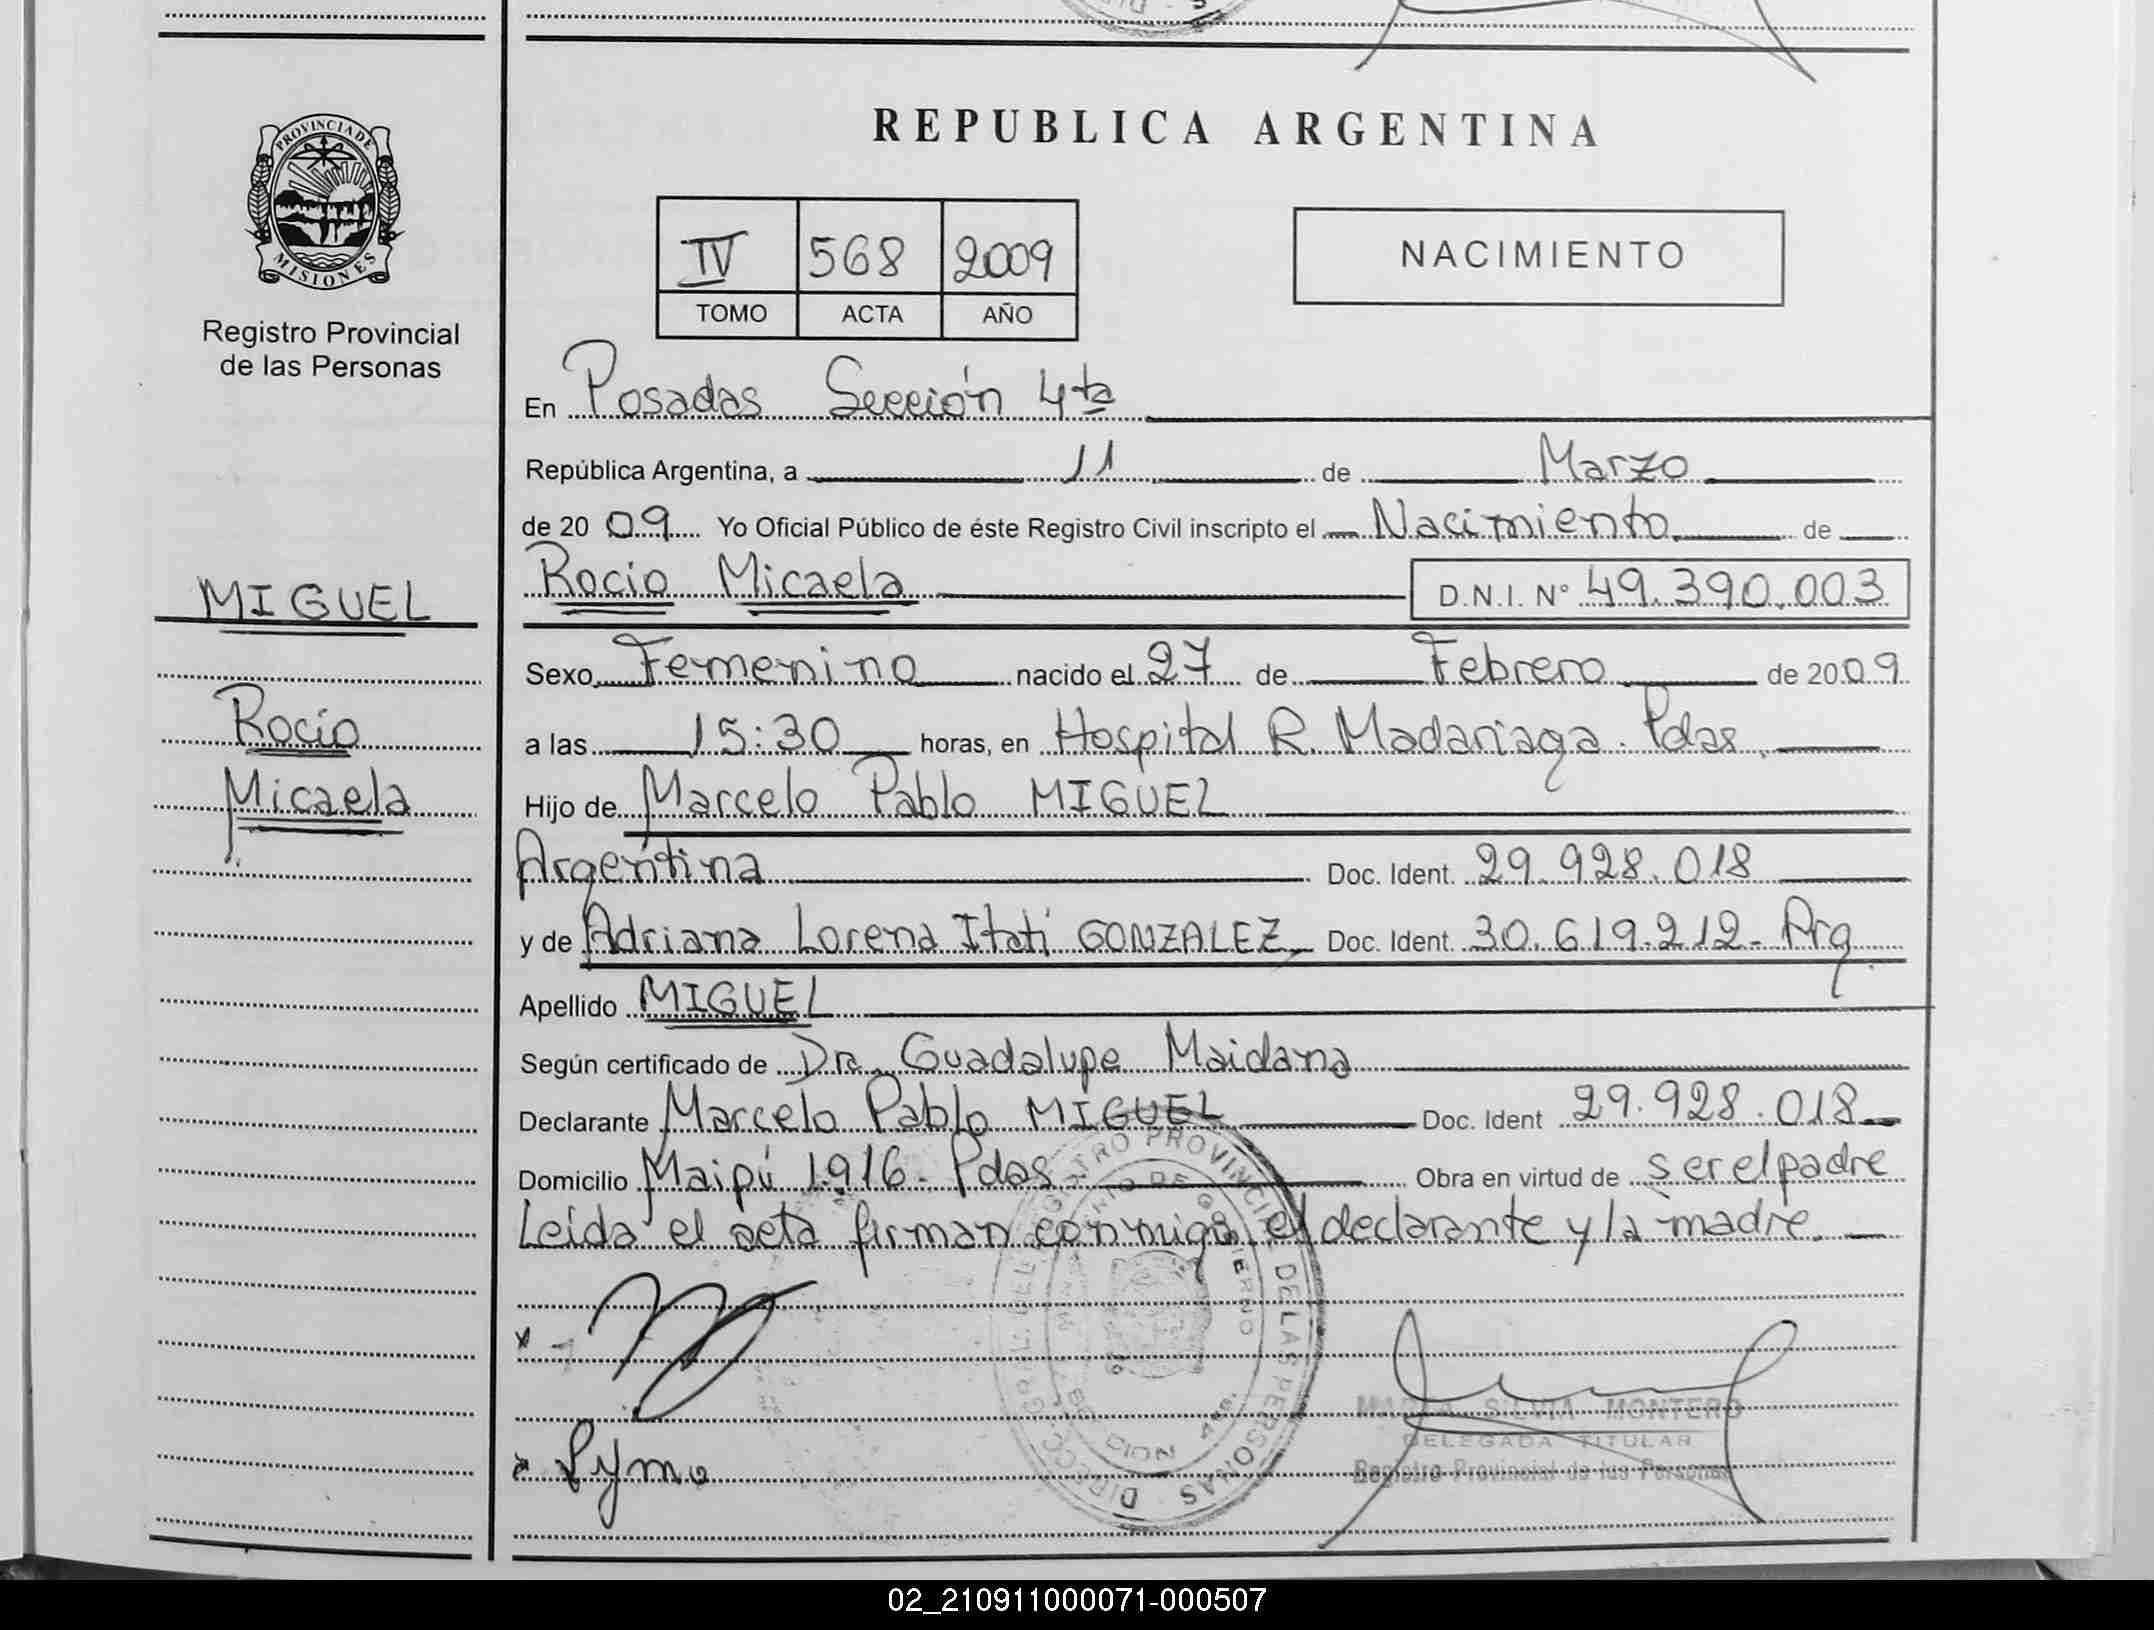 PROVINCIA DE
MISIONES
Registro Provincial
de las Personas
MIGUEL
Rocío
Micaela
REPUBLICA ARGENTINA
IV 568 2009
TOMO ACTA AÑO
NACIMIENTO
En Posadas Sección 4ta
República Argentina, a 11 de Marzo
de 20 09 Yo Oficial Público de éste Registro Civil inscripto el Nacimiento de
Rocío Micaela D.N.I. N° 49.390.003
Sexo Femenino nacido el 27 de Febrero de 2009
a las 15:30 horas, en Hospital R. Madariaga. Pdas.
Hijo de Marcelo Pablo MIGUEL
Argentina Doc. Ident. 29.928.018
y de Adriana Lorena Itatí GONZALEZ Doc. Ident. 30.619.212- Arg.
Apellido MIGUEL
Según certificado de Dra. Guadalupe Maidana
Declarante Marcelo Pablo MIGUEL Doc. Ident 29.928.018
Domicilio Maipú 1916- Pdas Obra en virtud de ser el padre
Leída el acta firman conmigo el declarante y la madre.
MARIA SILVIA MONTERO
DELEGADA TITULAR
Registro Provincial de las Personas
02_210911000071-000507